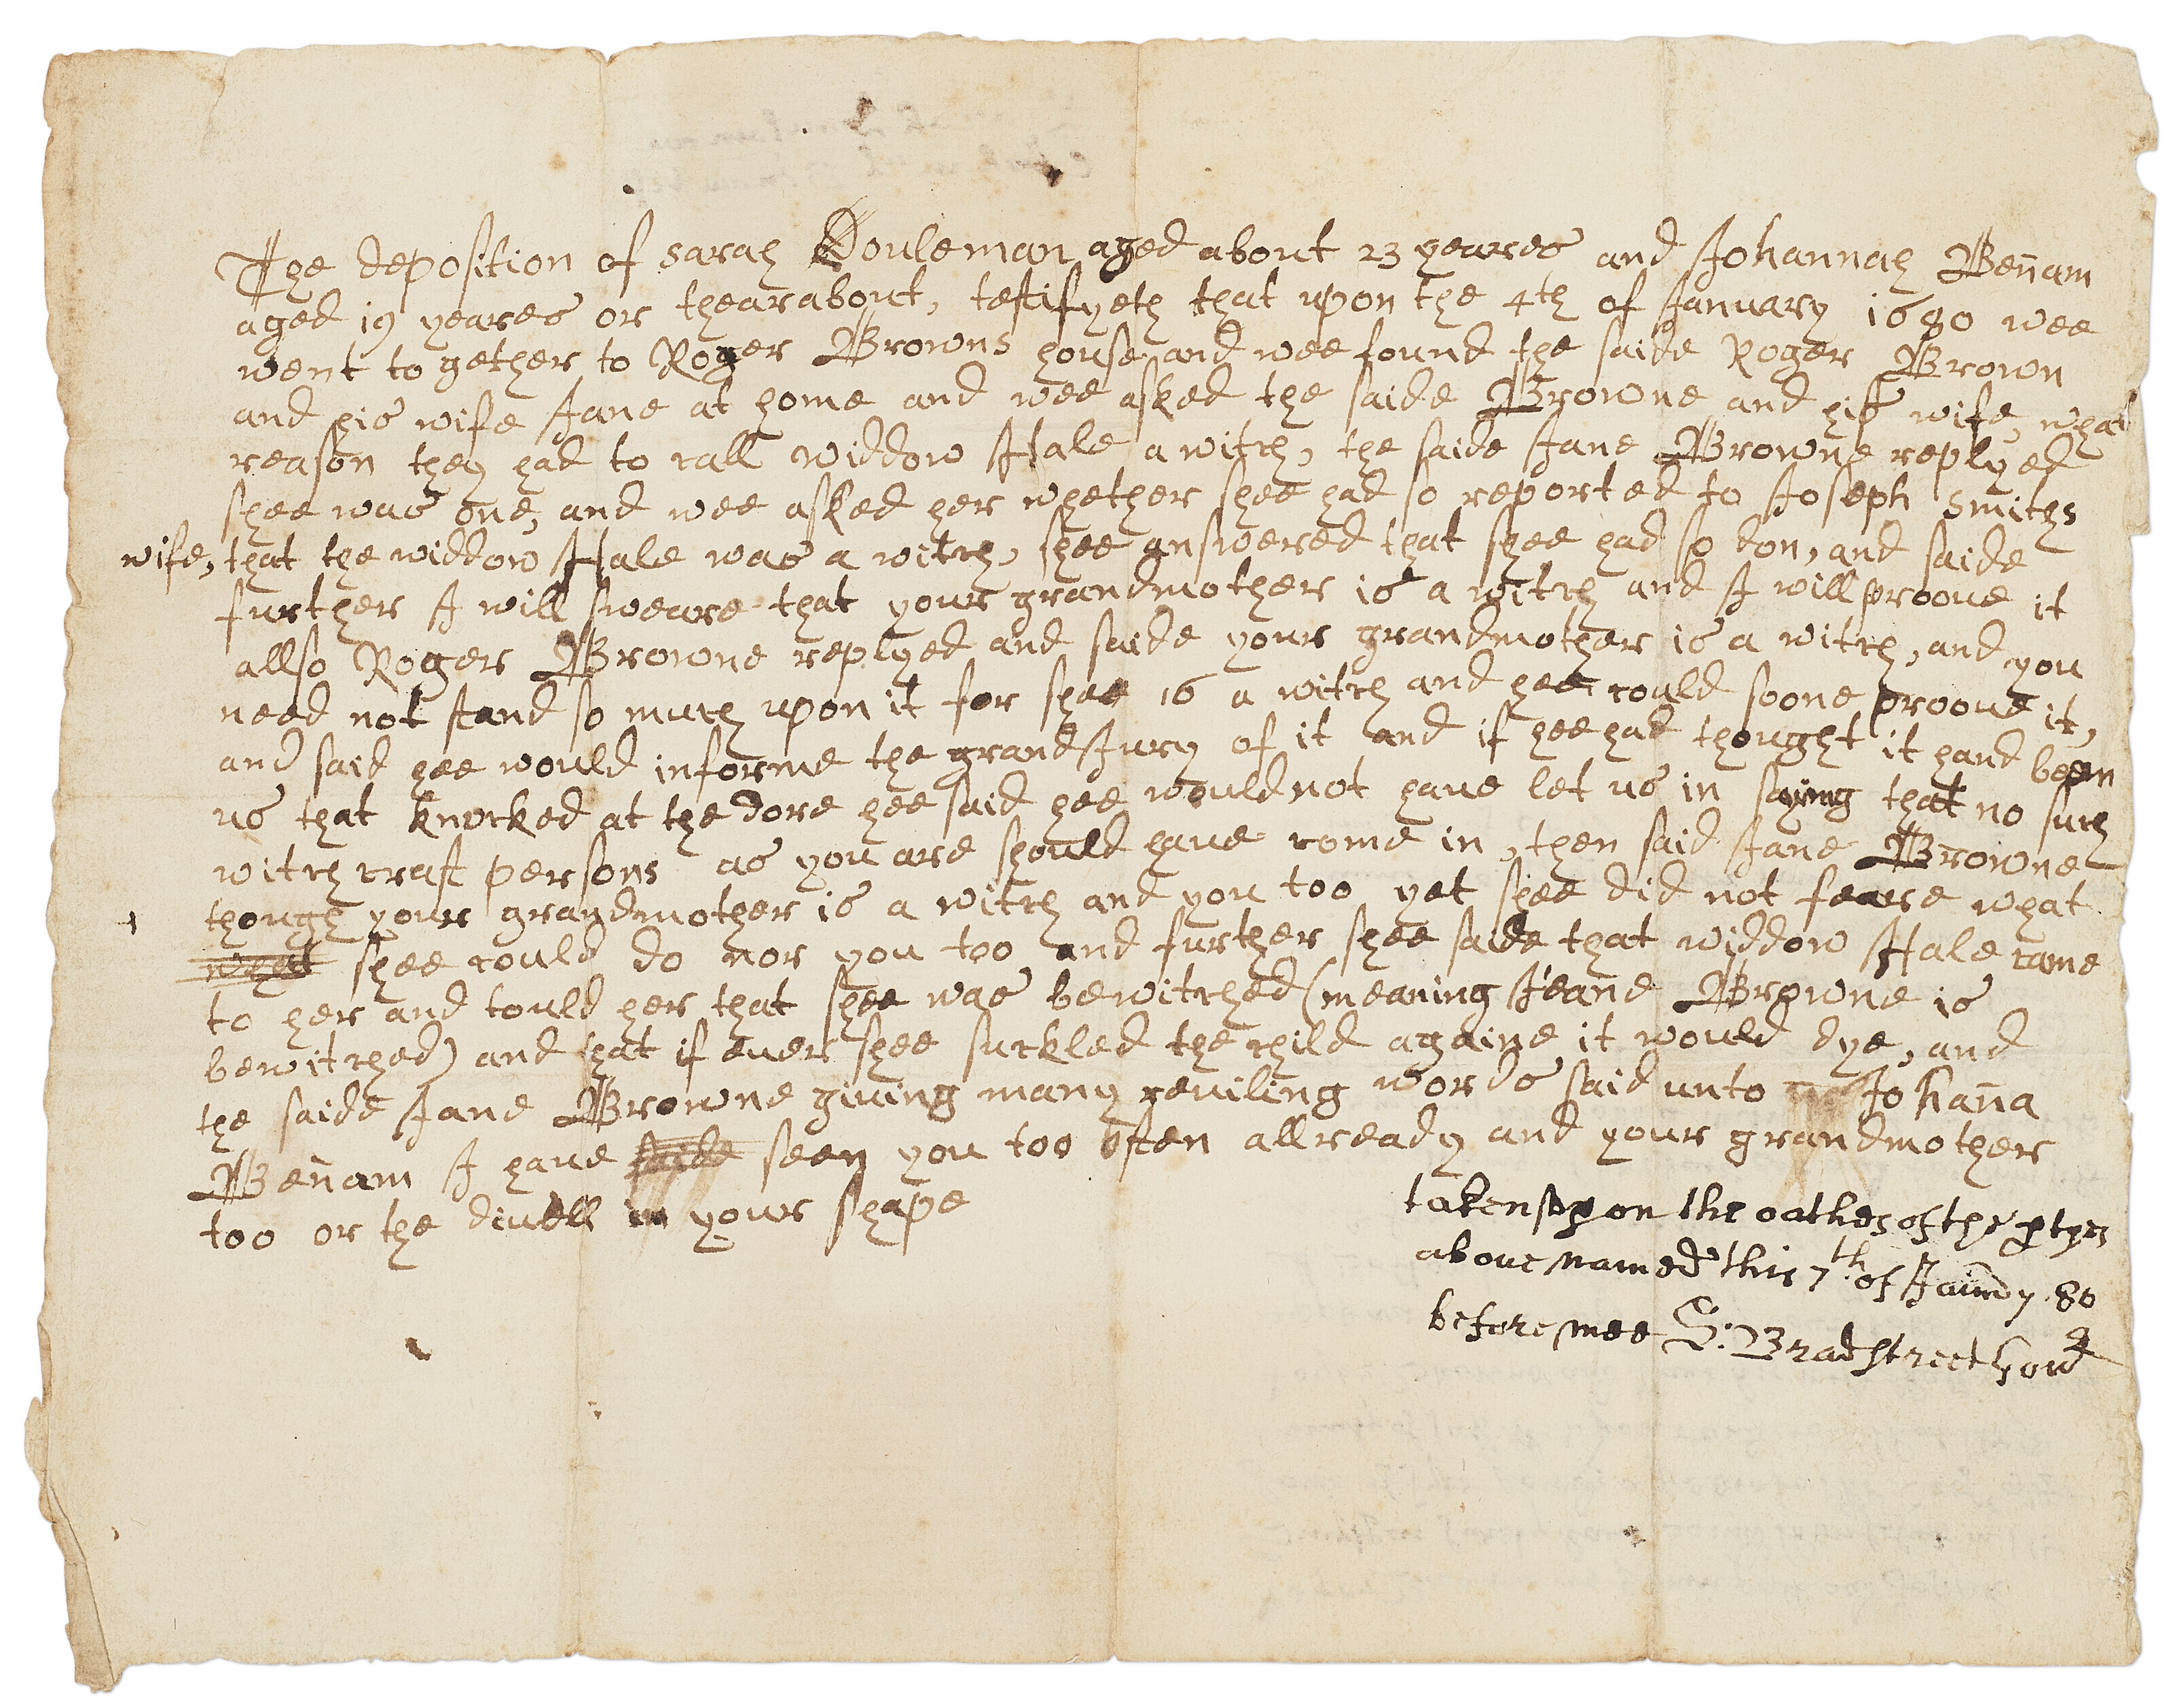 The deposition of sarah Douleman aged about 23 yeares and Johannah Beñam
aged 19 yeares or thearabout, testifyeth that upon the 4th of January 1680 wee
went to gether to Roger Browns house and wee found the saide Roger Brown
and his wife Jane at home and wee asked the saide Browne and his wife, what
reason they had to call widdow Hale a witch, the saide Jane Browne replyed
shee was one, and wee asked her whether shee had so reported to Joseph smiths
wife, that the widdow Hale was a witch, shee answered that shee had so don, and saide
further I will sweare that your grandmother is a witch and I will proove it
allso Roger Browne replyed and saide your grandmother is a witch, and you
need not stand so much upon it for shee is a witch and hee could soone proove it,
and said hee would informe the grandJury of it and if hee had thought it hand been
us that knocked at the dore hee said hee would not have let us in saying that no such
witchcraft persons as you are should have come in, then said Jane Browne
though your grandmother is a witch and you too yet shee did not feare what
what shee could do nor you too and further shee saide that widdow Hale came
to her and tould her that shee was bewitched (meaning Jeane Browne is
bewitched) and that if ever shee suckled the child againe it would dye, and
the saide Jane Browne giving many reviling words said unto Johaña
Beñam I have saide seen you too often allready and your grandmother
too or the divell in your shape
taken upon the oathes of the ptyes
above named this 7th of Janry 80
before mee S: Bradstreet Govr